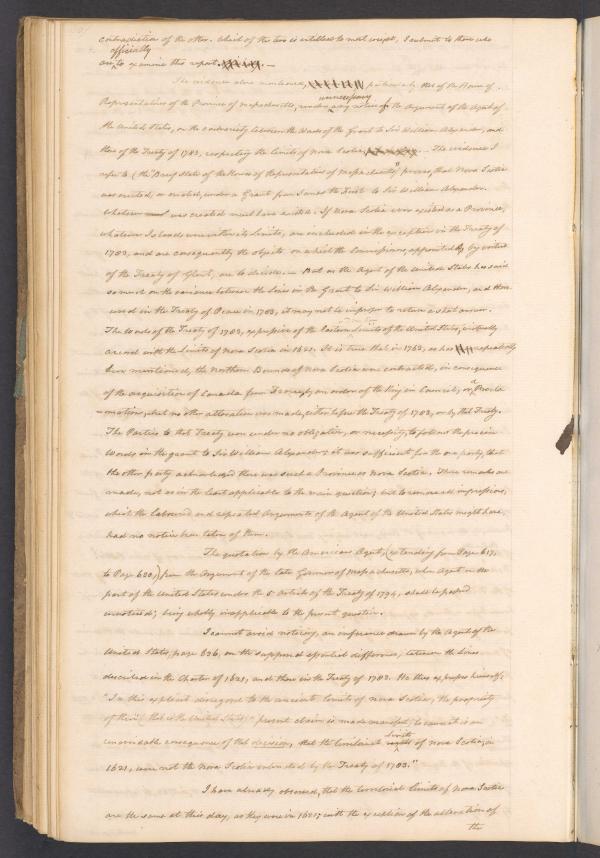 contradiction of the other. Which of the two is entitled to most weight, I submit to those who
officially
are to examine this report. —
The evidence above mentioned, particularly that of the House of
unnecessary
Representatives of the Province of Massachusetts, renders any notice of the Argument of the Agent of
the United States, on the contrariety between the Words of the Grant to Sir William Alexander, and
those of the Treaty of 1783, respecting the limits of Nova Scotia. — The evidence I
refer to (the "Brief State of the House of Representatives of Massachusetts") proves, that Nova Scotia
was erected, or created, under a Grant from James the First to Sir William Alexander.
Whatever was created must have existed. If Nova Scotia ever existed as a Province,
whatever Islands were within its Limits, are included in the exception in the Treaty of
1783, and are consequently the objects on which the Commissioners, appointed by virtue
of the Treaty of Ghent, are to decide. — But as the Agent of the United States has said
so much on the variance between the Lines in the Grant to Sir William Alexander, and those
used in the Treaty of Peace in 1783, it may not be improper to return a short answer.
The Words of the Treaty of 1783, expressive of the Eastern Limits of the United States, virtually
accord with the Limits of Nova Scotia in 1621. It is true that in 1763, as has repeatedly
been mentioned, the Northern Bounds of Nova Scotia were contracted, in consequence
of the acquisition of Canada from France, by an order of the King in Council, or a Procla
-mation; but no other alteration was made, either before the Treaty of 1783, or by that Treaty.
The Parties to that Treaty were under no obligation, or necessity, to follow the precise
Words in the grant to Sir William Alexander: it was sufficient for the one party, that
the other party acknowledged there was such a Province as Nova Scotia. These remarks are
made, not as in the least applicable to the main question; but to remove all impressions,
which the laboured and repeated Arguments of the Agent of the United States might have,
had no notice been taken of them.
The quotation by the American Agent, (extending from Page 617,
to Page 620,) from the Argument of the late Governor of Massachusetts, when Agent on the
part of the United States under the 5 Article of the Treaty of 1794, shall be passed
unnoticed; being wholly inapplicable to the present question.
I cannot avoid noticing, an inference drawn by the Agent of the
United States, page 636, on the supposed essential difference, between the Lines
described in the Charter of 1621, and those in the Treaty of 1783. He thus expresses himself;
"In this explicit disregard to the ancient limits of Nova Scotia, the propriety
of their" (that is the United States) "present claim is made manifest; because it is an
unavoidable consequence of that decision, that the territorial
limits
of Nova Scotia, in
1621, were not the Nova Scotia intended by the Treaty of 1783."
I have already observed, that the territorial limits of Nova Scotia
are the same at this day, as they were in 1621; with the exception of the alteration of
the